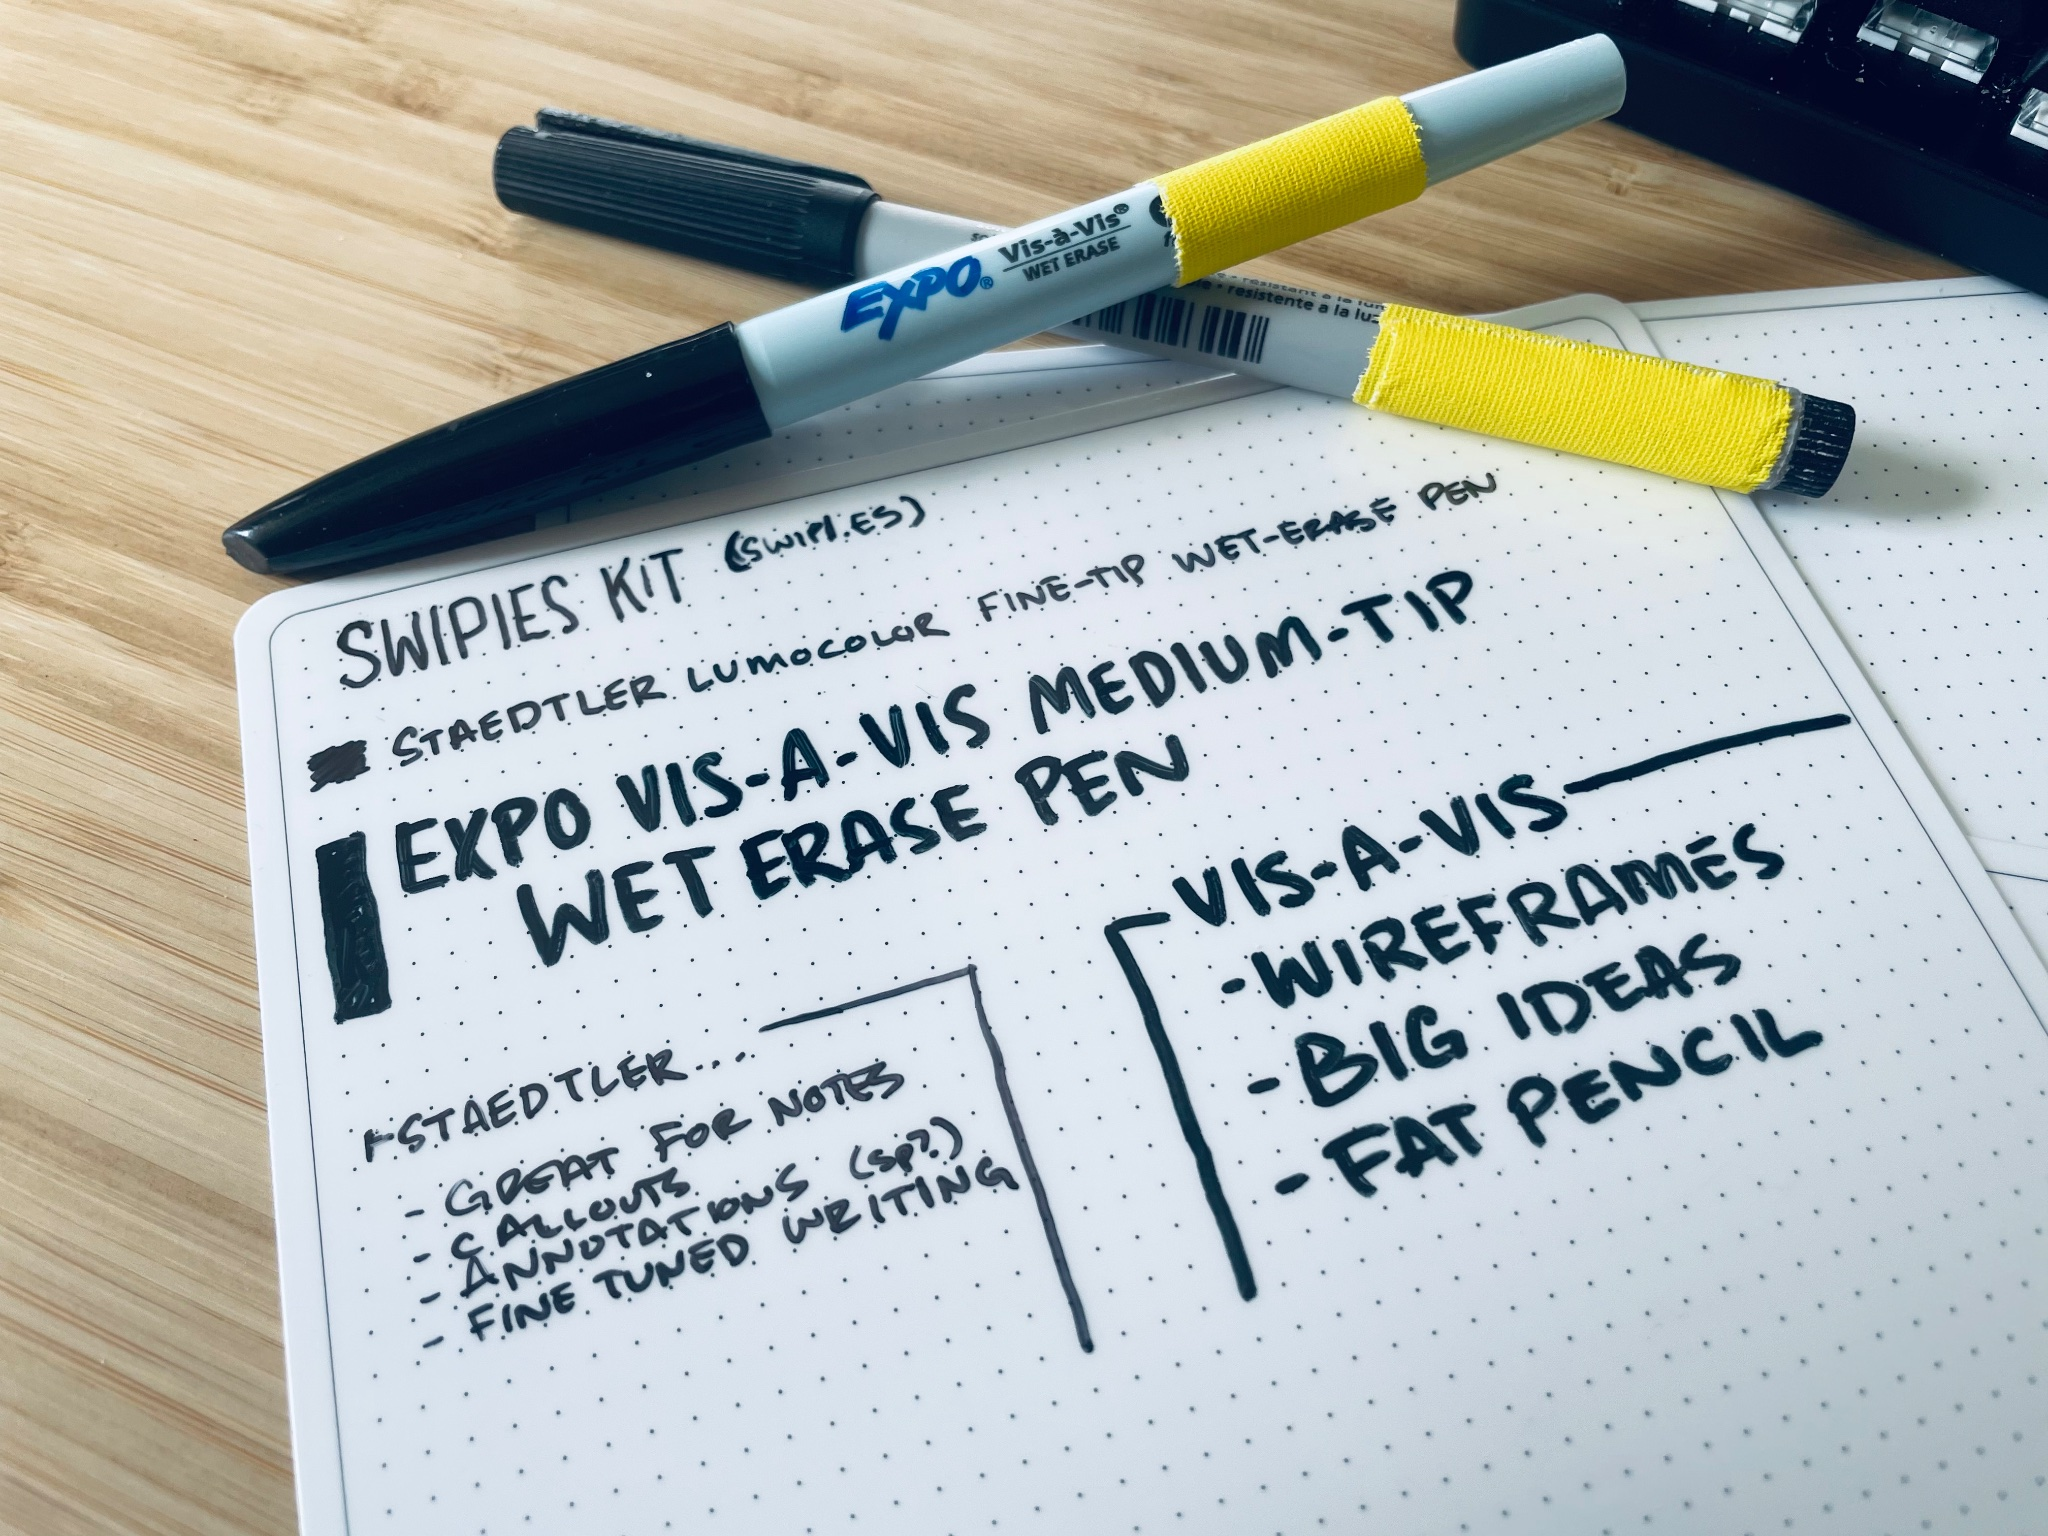 EXPO® Vis-à-Vis®
WET ERASE
resistant à la lum
resistente a la luz
SWIPIES KIT (SWIPI.ES)
STAEDTLER LUMOCOLOR FINE-TIP WET-ERASE PEN
EXPO VIS-A-VIS MEDIUM-TIP
WET ERASE PEN
STAEDTLER...
- GREAT FOR NOTES
- CALLOUTS
- ANNOTATIONS (sp?)
- FINE TUNED WRITING
VIS-A-VIS
- WIREFRAMES
- BIG IDEAS
- FAT PENCIL